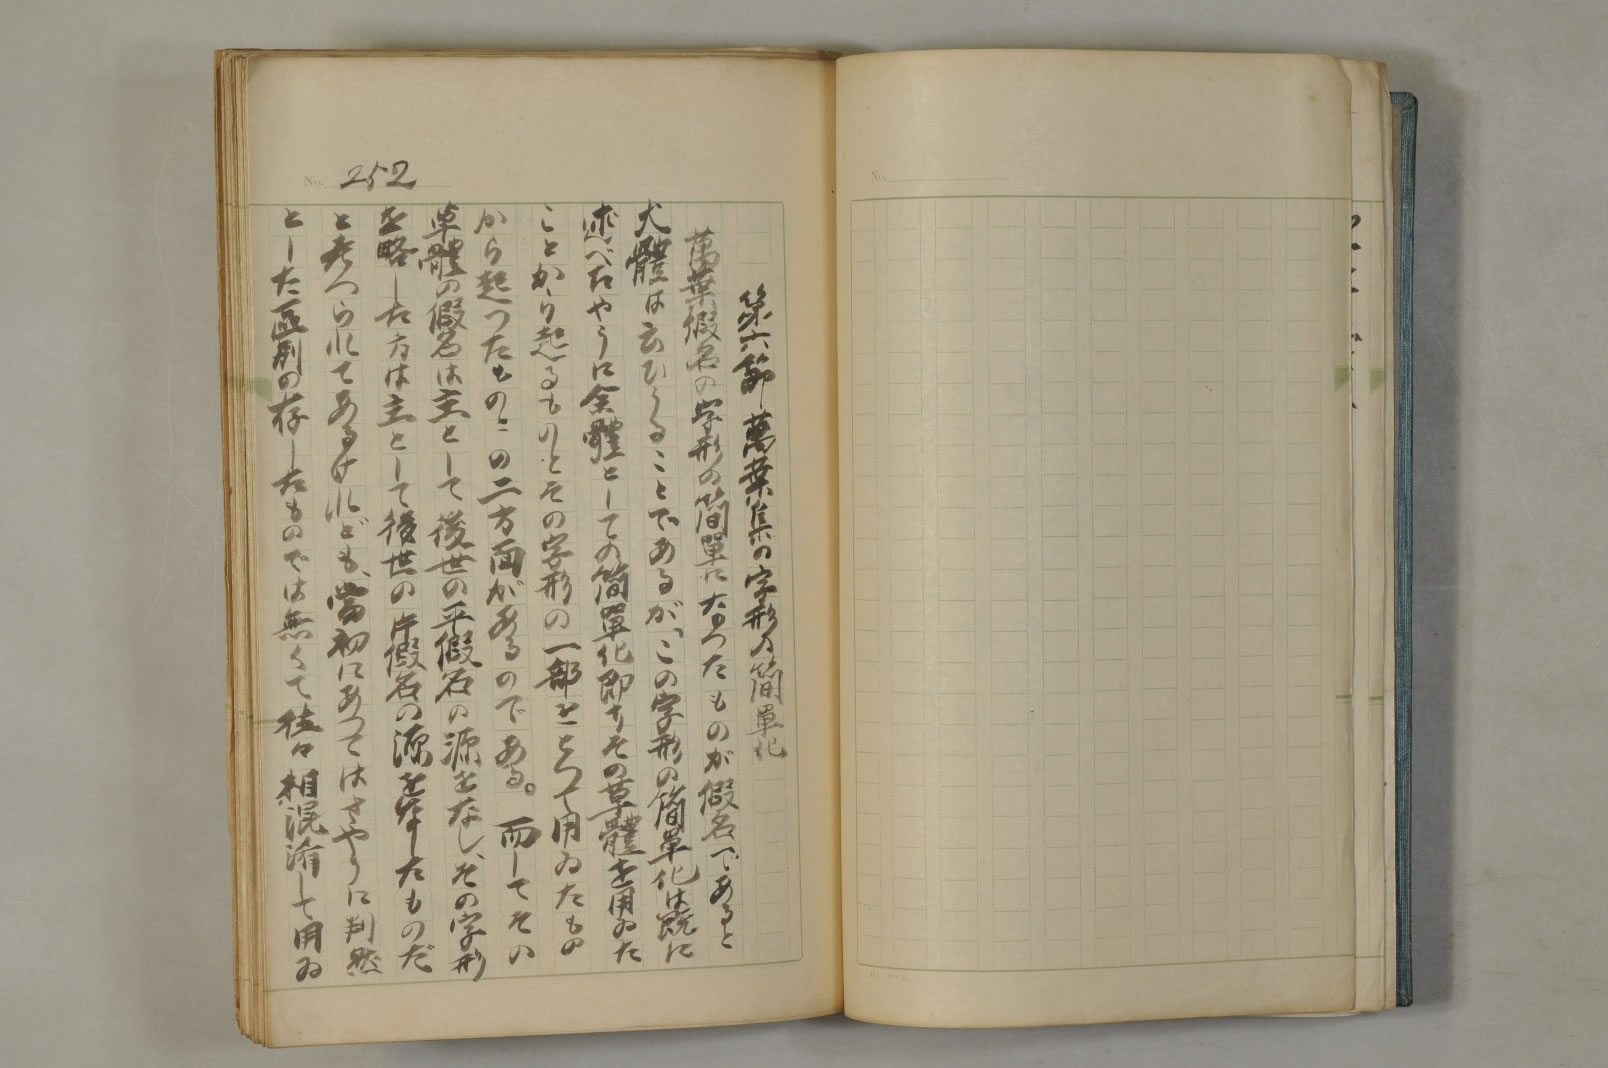 No.
No. 252
第六節 萬葉集の字形の簡單化
萬葉假名の字形の簡單になつたものが假名であると
大體は云ひうることであるが、この字形の簡單化は既に
述べたやうに全體としての簡單化即ちその草體を用ゐた
ことから起るものとその字形の一部をとつて用ゐたもの
から起つたものこの二方面があるのである。而してその
草體の假名は主として後世の平假名の源をなし、その字形
を略した方は主として後世の片假名の源を為したものだ
と考へられてあるけれども、當初にあつてはさやうに判然
とした區別の存したものでは無くて往々相混淆して用ゐ